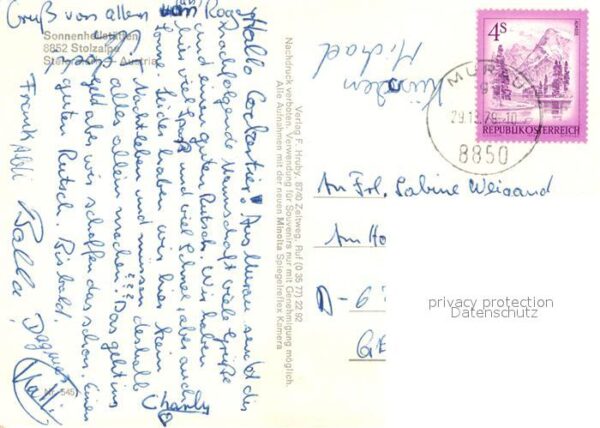 Gruß von allen von Roger
Sonnenheilstätten
8852 Stolzalpe
Steiermark - Austria
Hallo Aus Murau sendet die
nachfolgende Mannschaft viele Grüße
und einen guten Rutsch. Wir haben
hier viel Spaß und viel Schnee, aber auch
Sonne. Leider haben wir hier kein
Nachtleben und müssen deshalb
alles allein machen! Das geht ins
Geld aber wir schaffen das schon. Einen
guten Rutsch. Bis bald.
Charly
Frank
Dagmar
Nr. 545
Verlag F. Hruby, 8740 Zeltweg, Ruf (0 35 77) 22 92
Nachdruck verboten. Verwendung für Souvenirs nur mit Genehmigung möglich.
Alle Aufnahmen mit der neuen Minolta Spiegelreflex Kamera
Michael
4S
REPUBLIK ÖSTERREICH
MURAU
29.12.78-10
8850
An Frl. Sabine Weigand
Am Ho
D-6
GE
privacy protection
Datenschutz